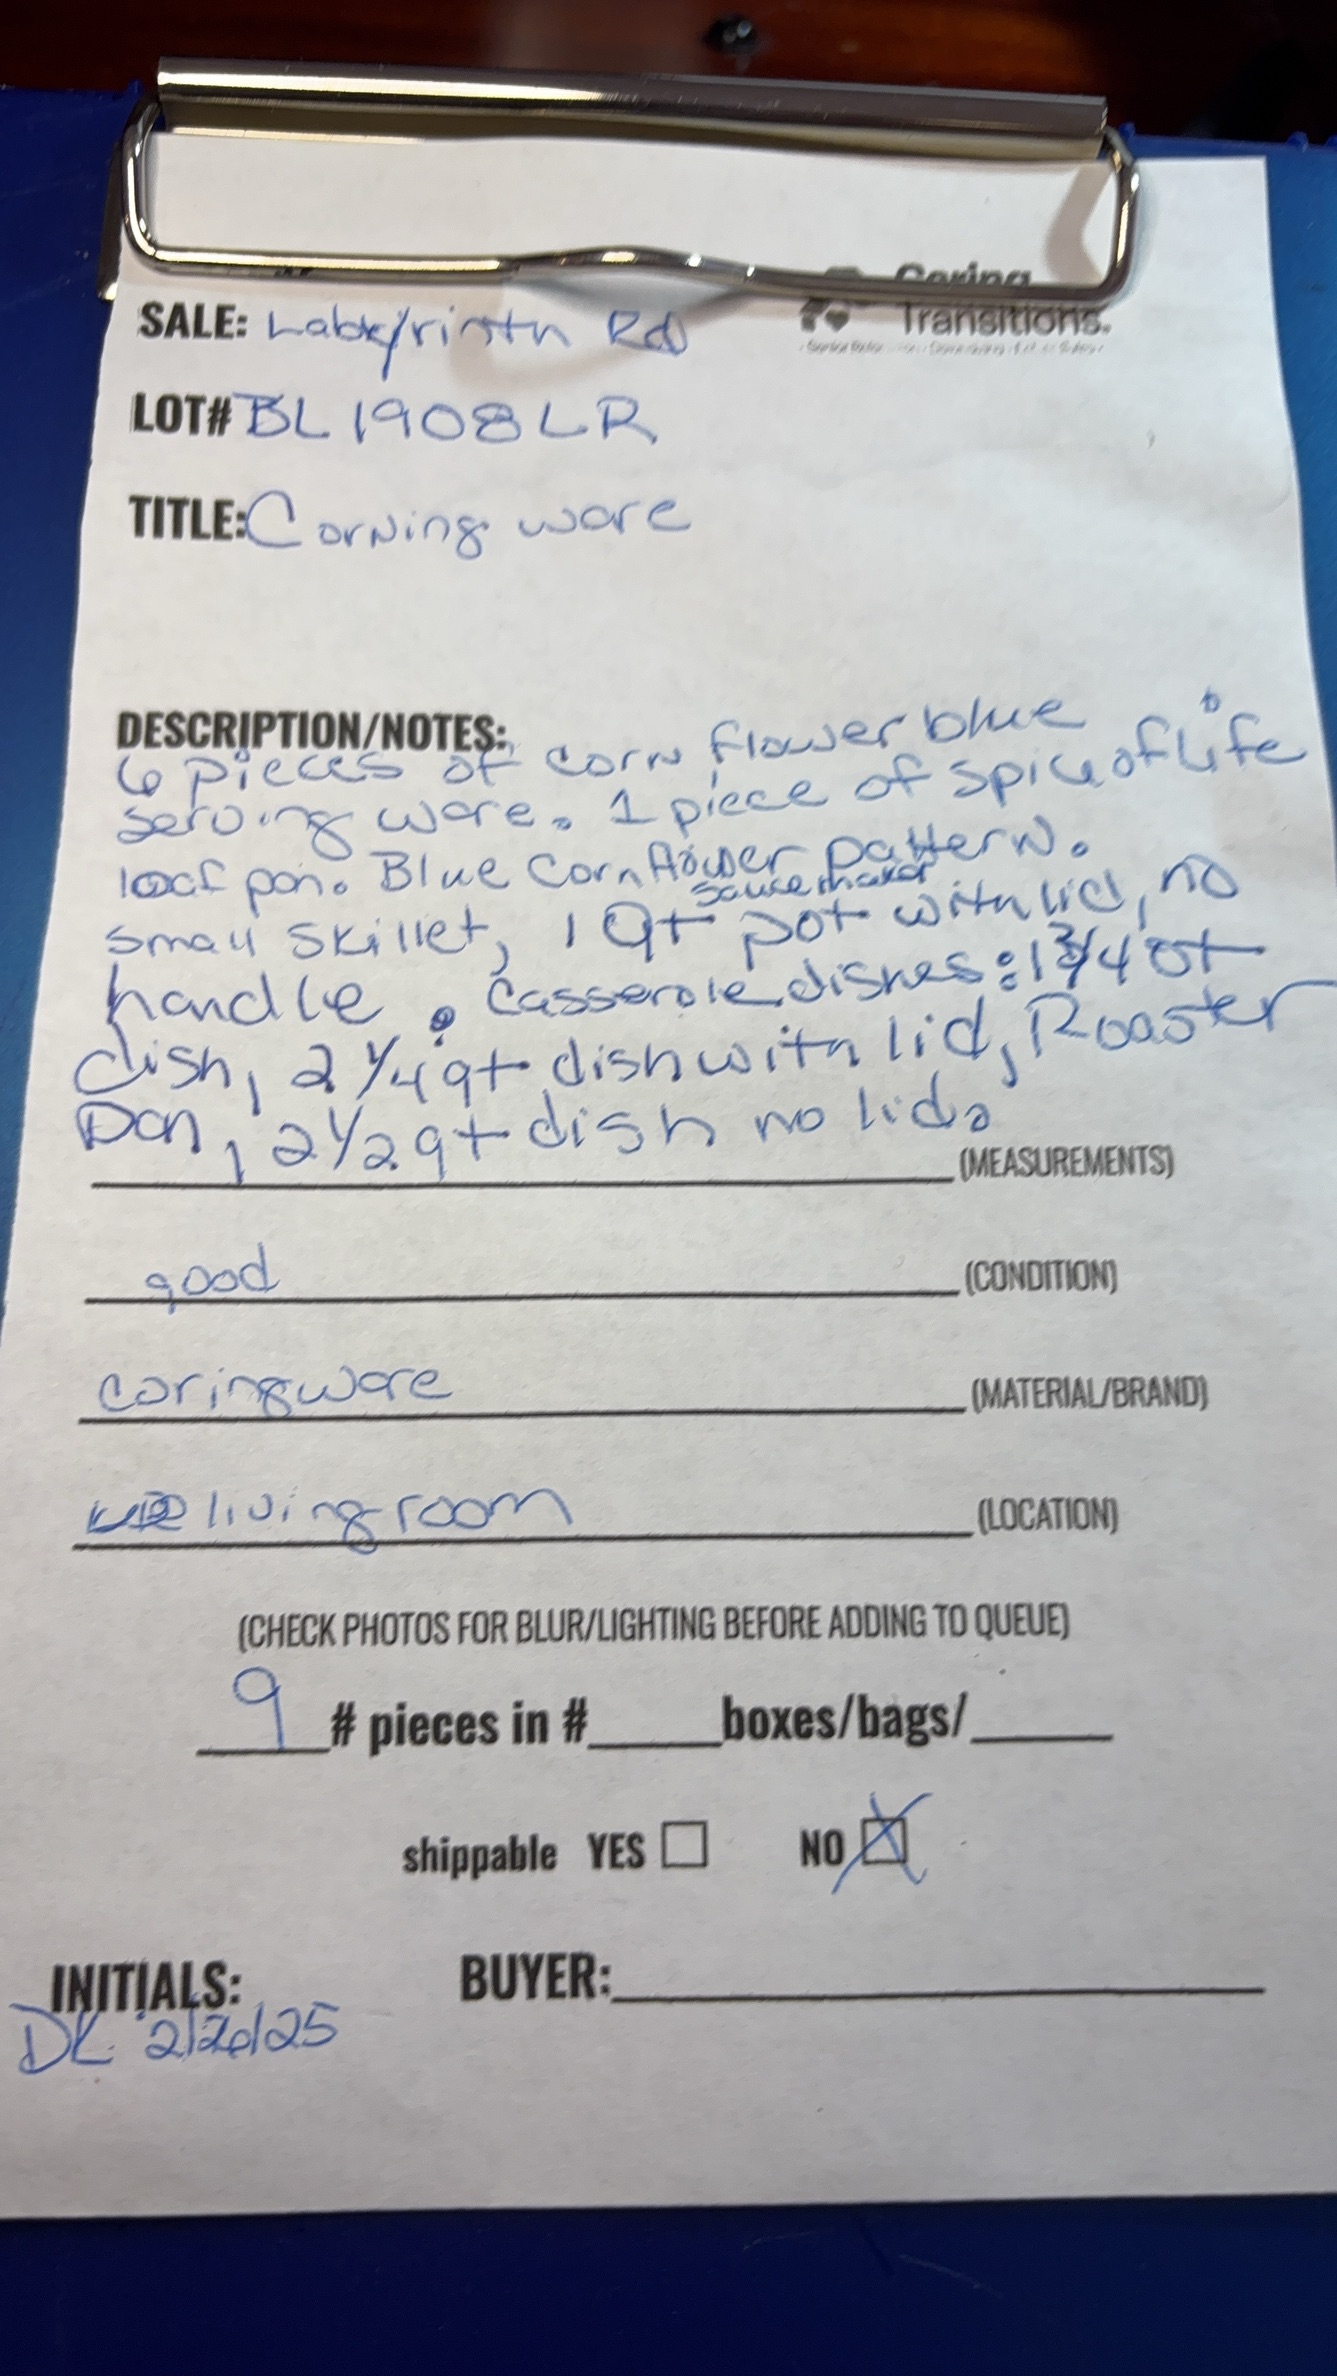 Caring
Transitions.
SALE: Labyrinth Rd
LOT# BL1908LR
TITLE: Corning ware
DESCRIPTION/NOTES:
6 pieces of corn flower blue
serving ware. 1 piece of spice of life
loaf pan. Blue Cornflower pattern.
saucemaker
small skillet, 1 Qt pot with lid, no
handle. Casserole dishes: 1 3/4 Qt
dish, 2 1/4 qt dish with lid, Roaster
Pan, 2 1/2 qt dish no lid.
(MEASUREMENTS)
good (CONDITION)
coringware (MATERIAL/BRAND)
livingroom (LOCATION)
(CHECK PHOTOS FOR BLUR/LIGHTING BEFORE ADDING TO QUEUE)
9 # pieces in # boxes/bags/
shippable YES NO X
INITIALS: BUYER:
DK 2/26/25